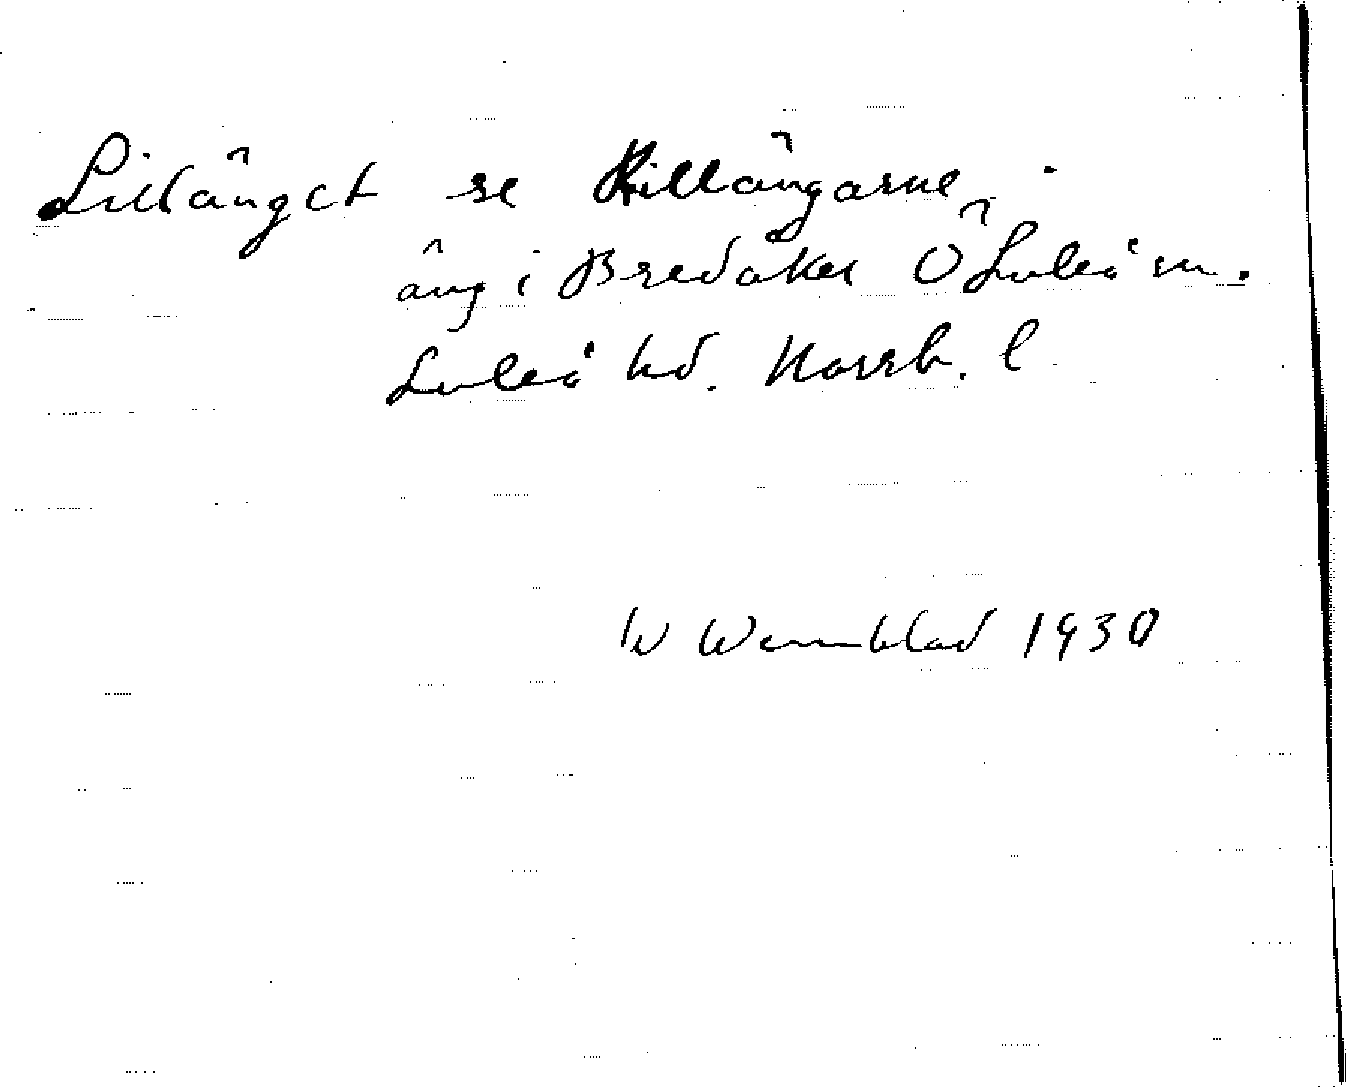 Lillänget se Killängarne.
äng i Bredåker Ö Luleå sn.
Luleå hd. Norrb. l
W Wennblad 1930